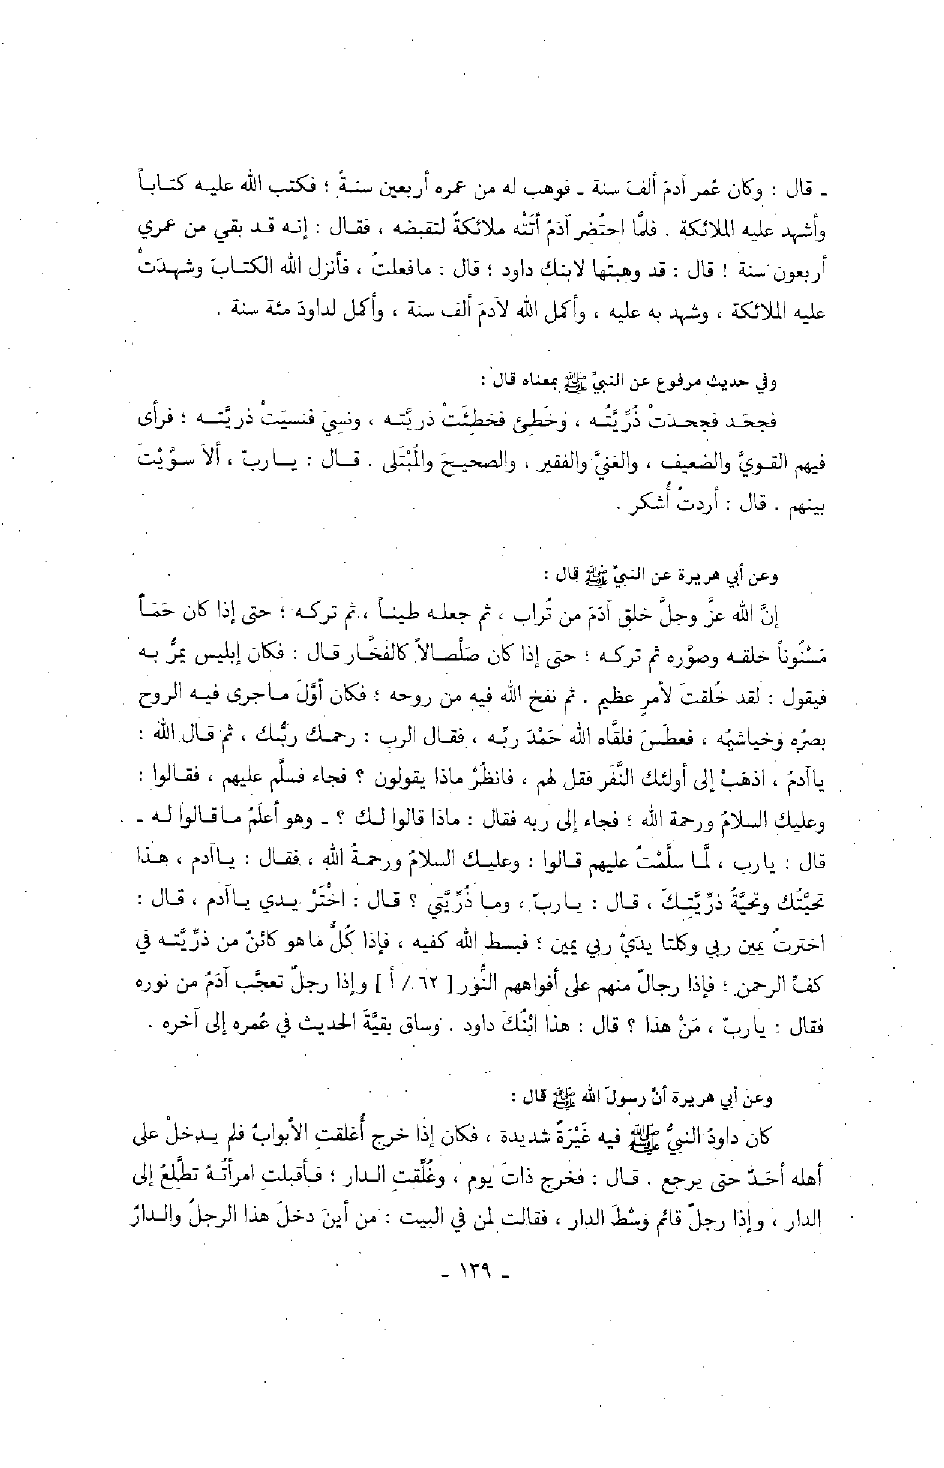 ـ قال : وكان عُمر آدمَ ألفَ سنة ـ فوهب له من عمره أربعين سنةً ؛ فكتب الله عليه كتاباً
وأشهد عليه الملائكة . فلمَّا احتُضر آدمُ أتَتْه ملائكةٌ لتقبضه ، فقال : إنه قد بقي من عمري
أربعون سنة ! قال : قد وهبتَها لابنك داود ؛ قال : مافعلتُ ، فأنزل الله الكتابَ وشهِدَتْ
عليه الملائكة ، وشهد به عليه ، وأكمل الله لآدمَ ألف سنة ، وأكمل لداودَ مئة سنة .
وفي حديث مرفوع عن النبيِّ ﷺ بمعناه قال :
فجحَد فجحدَتْ ذُرِّيَّتُه ، وخَطِئ فخَطِئَتْ ذريَّته ، ونسِيَ فنسيَتْ ذريَّته ؛ فرأى
فيهم القويَّ والضعيف ، والغنيَّ والفقير ، والصحيحَ والمُبْتَلى . قال : ياربّ ، ألاَ سوَّيْتَ
بينهم . قال : أردتُ أُشكر .
وعن أبي هريرة عن النبيِّ ﷺ قال :
إنَّ الله عزَّ وجلَّ خلق آدَمَ من تُراب ، ثم جعله طيناً ، ثم تركه ؛ حتى إذا كان حَمَأً
مَسْنُوناً خلقه وصوَّره ثم تركه ؛ حتى إذا كان صَلْصالاً كالفخَّار قال : فكان إبليس يمرُّ به
فيقول : لقد خُلقتَ لأمرٍ عظيم . ثم نفخ الله فيه من روحه ؛ فكان أوَّلَ ماجرى فيه الروح
بصرُه وخياشيمُه ، فعطسَ فلقَّاه الله حَمْدَ ربِّه ، فقال الرب : رحمك ربُّك ، ثم قال الله :
ياآدمُ ، اذهبْ إلى أولئك النَّفَر فقل لهم ، فانظُرْ ماذا يقولون ؟ فجاء فسلَّم عليهم ، فقالوا :
وعليك السلامُ ورحمة الله ؛ فجاء إلى ربه فقال : ماذا قالوا لك ؟ ـ وهو أعلَمُ ماقالوا له ـ
قال : يارب ، لَّما سلَّمْتُ عليهم قالوا : وعليك السلامُ ورحمةُ الله ، فقال : ياآدم ، هذا
تحيَّتُك وتحيَّةُ ذرِّيَّتِكَ ، قال : ياربّ ، وما ذُرِّيَّتي ؟ قال : اخْتَرْ يدي ياآدم ، قال :
اخترتُ يمين ربي وكلتا يدَيْ ربي يمين ؛ فبسط الله كفيه ، فإذا كُلُّ ماهو كائنٌ من ذرِّيَّته في
كفِّ الرحمن ؛ فإذا رجالٌ منهم على أفواههم النُّور [ ٦٢ / أ ] وإذا رجلٌ تعجَّب آدَمُ من نوره
فقال : ياربّ ، مَنْ هذا ؟ قال : هذا ابْنُكَ داود . وساق بقيَّةَ الحديث في عُمره إلى آخره .
وعن أبي هريرة أنَّ رسولَ الله ﷺ قال :
كان داودُ النبيُّ ﷺ فيه غَيْرَةٌ شديدة ، فكان إذا خرج أُغلقتِ الأبوابُ فلم يدخلْ على
أهله أحَدٌ حتى يرجع . قال : فخرج ذاتَ يوم ، وغُلِّقتِ الدار ؛ فأقبلتِ امرأتُهُ تطَّلعُ إلى
الدار ، وإذا رجلٌ قائم وسْطَ الدار ، فقالت لمن في البيت : من أينَ دخلَ هذا الرجلُ والدارُ
ـ ١٣٩ ـ